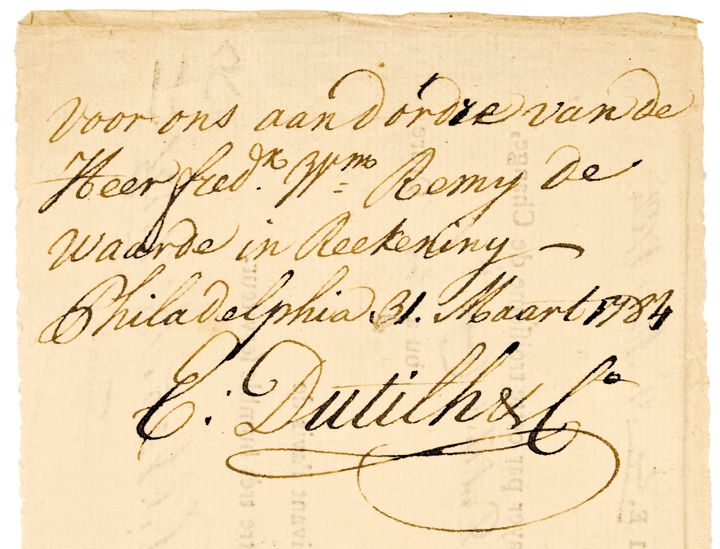 Voor ons aan d'ordre van de
Heer fredk. Wm Remy de
waarde in Reekening —
Philadelphia 31. Maart 1784
E. Dutilh & Co